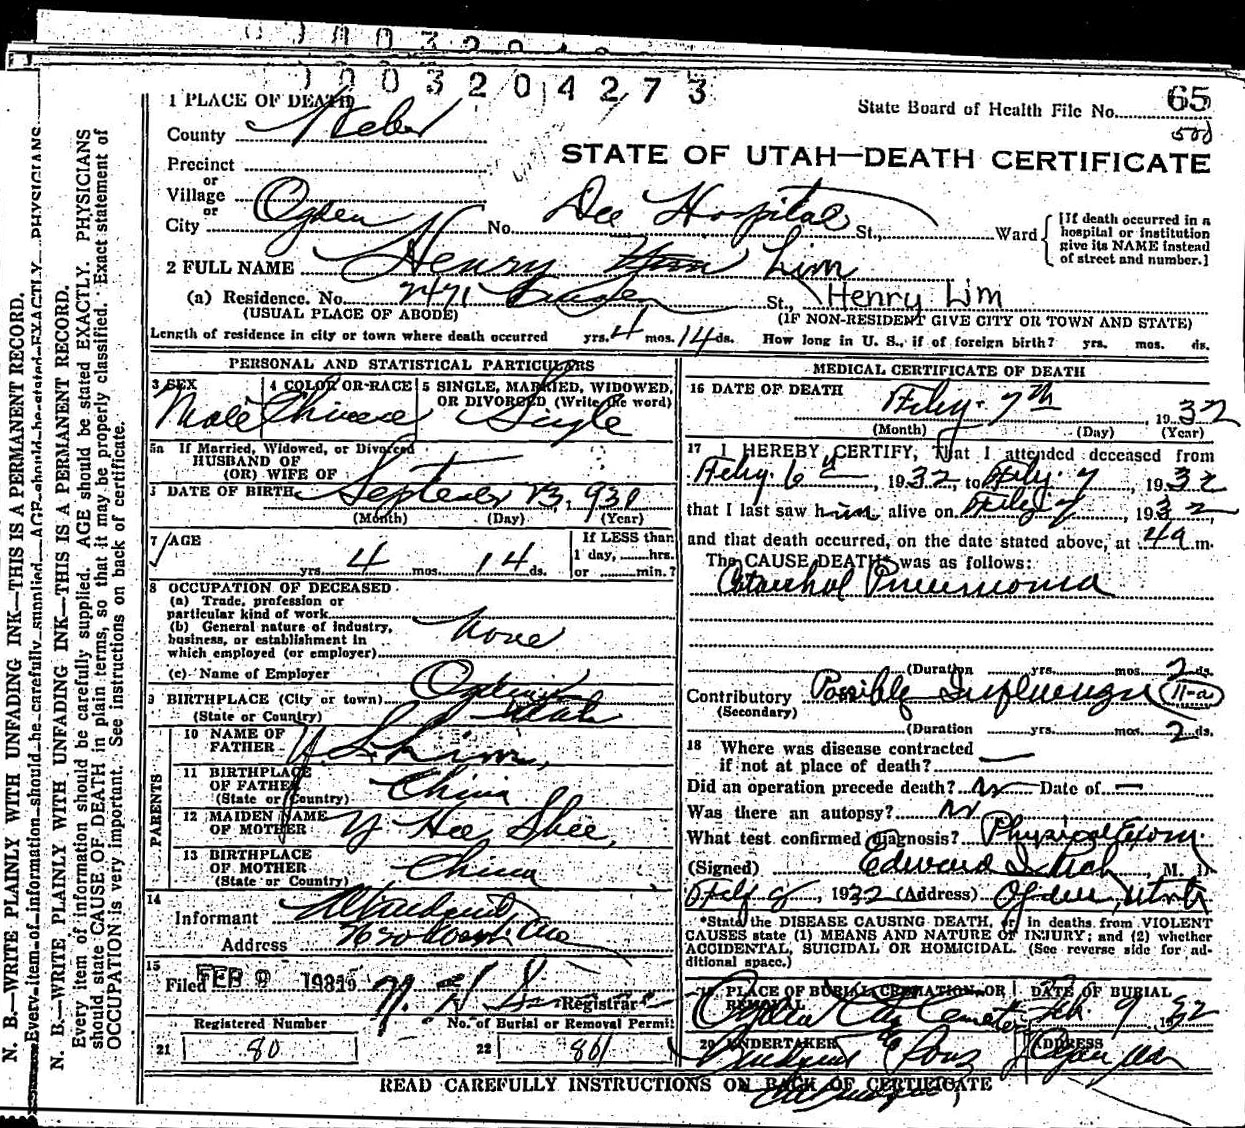 0003204273
1 PLACE OF DEATH
State Board of Health File No. 65
County Weber
STATE OF UTAH—DEATH CERTIFICATE
Precinct
or
Village
or
City Ogden No. Dee Hospital St., Ward
[If death occurred in a hospital or institution give its NAME instead of street and number.]
2 FULL NAME Henry Lim
(a) Residence. No. 2471 St., Henry Lim
(USUAL PLACE OF ABODE) (IF NON-RESIDENT GIVE CITY OR TOWN AND STATE)
Length of residence in city or town where death occurred yrs. 4 mos. 14 ds. How long in U. S., if of foreign birth? yrs. mos. ds.
PERSONAL AND STATISTICAL PARTICULARS
3 SEX Male
4 COLOR OR RACE Chinese
5 SINGLE, MARRIED, WIDOWED, OR DIVORCED (Write the word) Single
5a If Married, Widowed, or Divorced
HUSBAND OF
(OR) WIFE OF
DATE OF BIRTH September 23, 1931
(Month) (Day) (Year)
7 AGE yrs. 4 mos. 14 ds.
If LESS than 1 day, hrs. or min.?
8 OCCUPATION OF DECEASED
(a) Trade, profession or particular kind of work
(b) General nature of industry, business, or establishment in which employed (or employer) None
(c) Name of Employer
9 BIRTHPLACE (City or town) Ogden
(State or Country) Utah
PARENTS
10 NAME OF FATHER Y. S. Lim
11 BIRTHPLACE OF FATHER (State or Country) China
12 MAIDEN NAME OF MOTHER Y Hee Shee
13 BIRTHPLACE OF MOTHER (State or Country) China
14
Informant
Address
15
Filed FEB 9
Registrar
Registered Number
No. of Burial or Removal Permit
21 80
22 861
MEDICAL CERTIFICATE OF DEATH
16 DATE OF DEATH Feby. 7th 1932
(Month) (Day) (Year)
17 I HEREBY CERTIFY, That I attended deceased from
Feby. 6th, 1932, to Feby. 7, 1932
that I last saw him alive on Feby 7, 1932
and that death occurred, on the date stated above, at 4 a m.
The CAUSE DEATH* was as follows:
Catarrhal Pneumonia
(Duration yrs. mos. 2 ds.
Contributory Possibly Influenza 11-a
(Secondary)
(Duration yrs. mos. 2 ds.
18 Where was disease contracted
if not at place of death? —
Did an operation precede death? no Date of —
Was there an autopsy? no
What test confirmed diagnosis? Physical Exam.
(Signed) Edward M. D.
Feby 8, 1932 (Address) Ogden, Utah
*State the DISEASE CAUSING DEATH, or in deaths from VIOLENT
CAUSES state (1) MEANS AND NATURE OF INJURY; and (2) whether
ACCIDENTAL, SUICIDAL OR HOMICIDAL. (See reverse side for ad-
ditional space.)
19 PLACE OF BURIAL, CREMATION, OR REMOVAL Ogden City Cemetery
DATE OF BURIAL Feb. 9 1932
20 UNDERTAKER & Sons
ADDRESS Ogden Utah
READ CAREFULLY INSTRUCTIONS ON BACK OF CERTIFICATE
N. B.—WRITE PLAINLY WITH UNFADING INK—THIS IS A PERMANENT RECORD.
Every item of information should be carefully supplied. AGE should be stated EXACTLY. PHYSICIANS
N. B.—WRITE PLAINLY WITH UNFADING INK—THIS IS A PERMANENT RECORD.
Every item of information should be carefully supplied. AGE should be stated EXACTLY. PHYSICIANS
should state CAUSE OF DEATH in plain terms, so that it may be properly classified. Exact statement of
OCCUPATION is very important. See instructions on back of certificate.